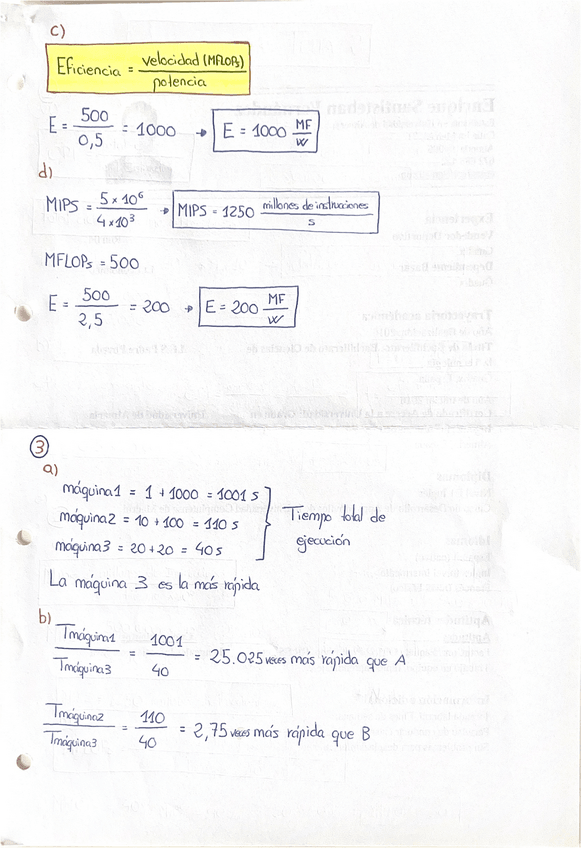 c)
Eficiencia = velocidad (MFLOPs) / potencia
E = 500 / 0,5 = 1000 → E = 1000 MF / W
d)
MIPS = 5 × 10⁶ / 4 × 10³ → MIPS = 1250 millones de instrucciones / s
MFLOPs = 500
E = 500 / 2,5 = 200 → E = 200 MF / W
3
a)
máquina1 = 1 + 1000 = 1001 s
máquina2 = 10 + 100 = 110 s
máquina3 = 20 + 20 = 40 s
Tiempo total de
ejecución
La máquina 3 es la más rápida
b)
Tmáquina1 / Tmáquina3 = 1001 / 40 = 25.025 veces más rápida que A
Tmáquina2 / Tmáquina3 = 110 / 40 = 2,75 veces más rápida que B